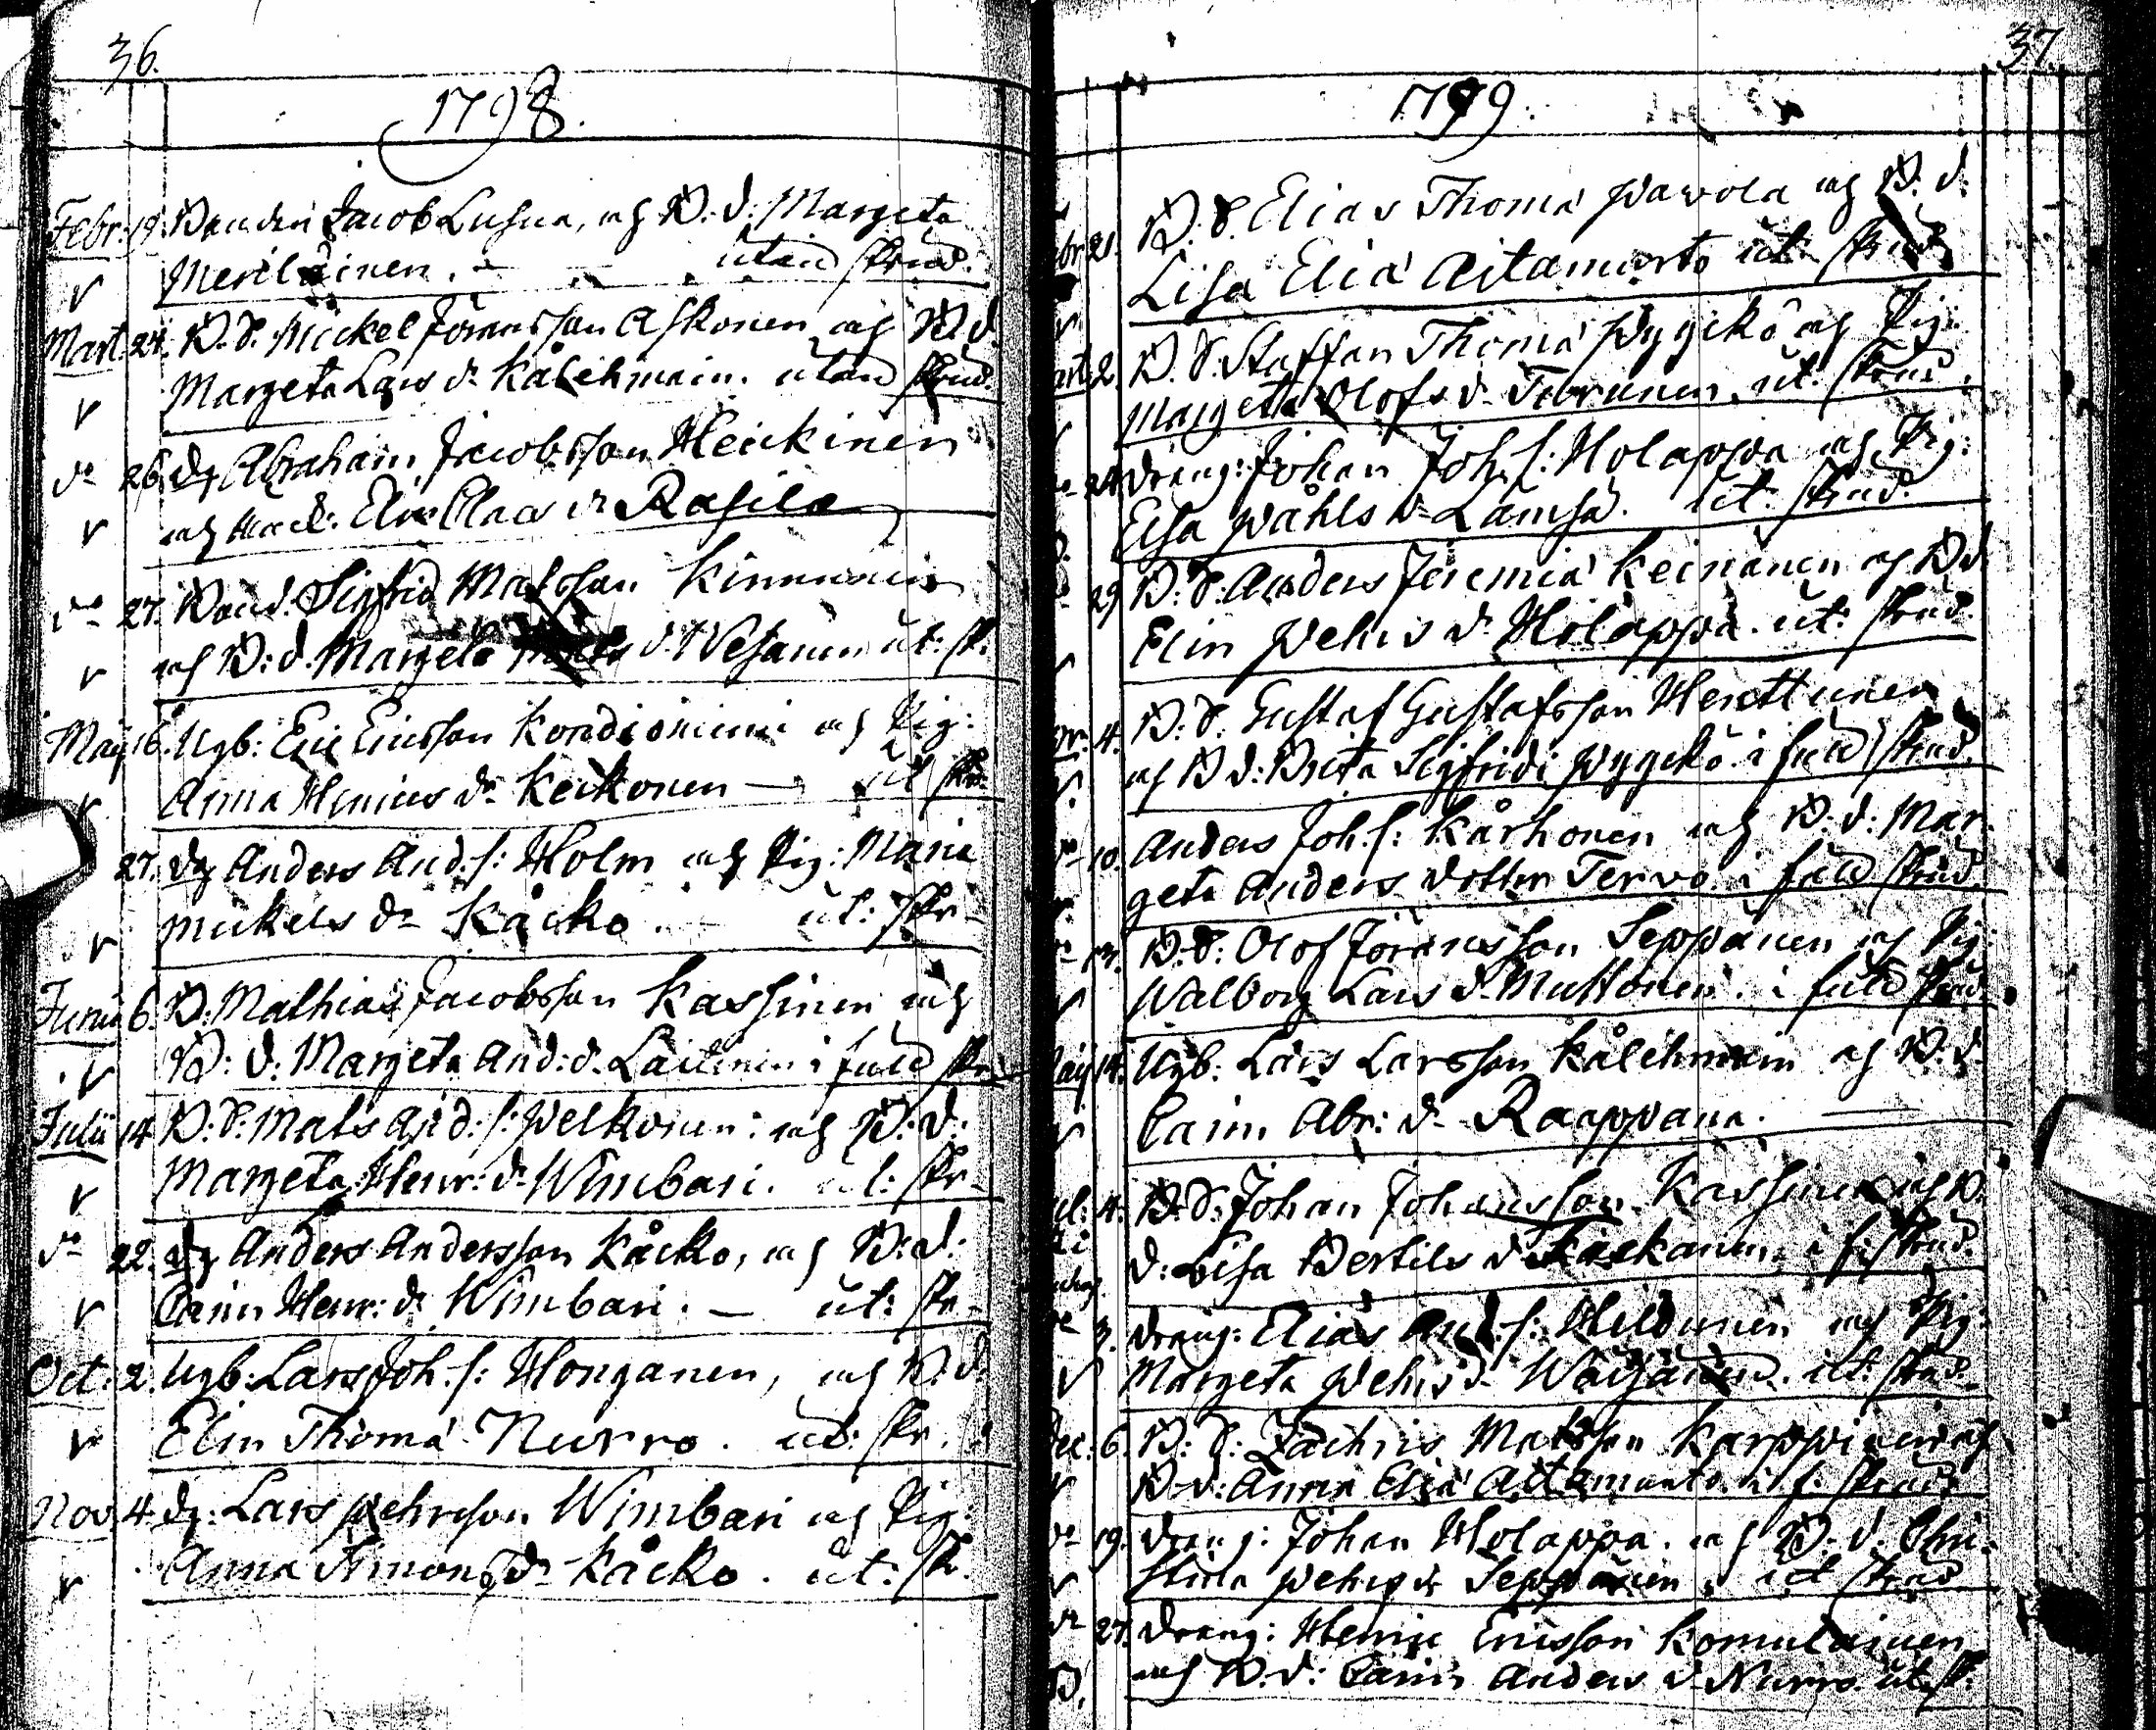 36.
1798.
Febr: 19. Bonden Jacob Lusua, och B: d: Margeta
Meriläinen. utan skrud.
Mart. 24. B. S. Mickel Jöransson Askonen och B. d.
Margeta Lars dr Kålehmain. utan skrud.
do 26. Dg Abraham Jacobsson Heickinen
och Elin Claes dr Rasila
do 27. Bond. Sigfrid Matsson Kinnunen
och B: d. Margeta dr Wesanen ut: sk.
Maij 16. Nyb: Eric Ericsson Kondioinen och Pig:
Anna Henrics dr Keckonen ut skr.
27. Dg Anders And. s: Holm och Pig: Maria
Mickels dr Kåcko. ut: skr.
Junii 6. B: Mathias Jacobsson Kassinen och
B: d: Margeta And: d. Laitinen i fuld skr.
Julii 14. B: S: Mats And: s: Pelkonen: och B: d:
Margeta Henr: dr Wimbari. ut: skr.
do 22. Dg Anders Andersson Kåcko, och B: d:
Carin Henr: dr Wimbari. ut: skr.
Oct: 2. Nyb: Lars Joh. s: Honganen, och B: d.
Elin Thoma Nurro. ut: skr.
Nov. 4. Dg: Lars Pehrsson Wimbari och Pig:
Anna Simons dr Kåcko. ut: sk.
37.
1799.
21. B. S. Elias Thoma Pavola och B. d.
Lisa Elia Aitamurto ut: skrud
2. B. S. Staffan Thoma Pyyckö och Pig:
Margeta Olofs dr Tervunen. ut. skrud.
24. Dräng: Johan Joh. s: Holappa och Pig:
Elsa Påhls dr Lämsä. ut: skrud.
29. B: S: Anders Jeremia Keinänen och B d.
Elin Pehrs dr Holappa. ut: skrud.
4. B: S. Gustaf Gustafsson Henttunen
och B d: Brita Sigfridi Pyyckö i fuld skrud.
10. Anders Joh. s: Kårhonen och B: d: Mar-
geta Anders dotter Tervo i fuld skrud.
13. B: S: Olof Jöransson Seppänen och Pig
Walborg Lars dr Muttonen. i fuld skrud.
Maij 14. Nyb: Lars Larsson Kålehmain och B: d.
Carin Abr: dr Raappana.
4. B: S: Johan Johansson Kassinen och B.
d: Lisa Bertils dr i f. skrud.
3. Dräng: Elias And. s: Hildunen och Pig:
Margeta Pehrs dr ut: skrud.
Dec: 6. B: S: Zachris Matsson Karppinen och
B: d: Anna Elia Aitamurto. i f: skrud
do 19. Dräng: Johan Holappa. och B: d: Chri-
stina Pehrs dr Seppänen. ut skrud
do 27. Dräng: Henric Ericsson Komulainen
och B. d: Carin Anders dr Nurro. ut. sk: